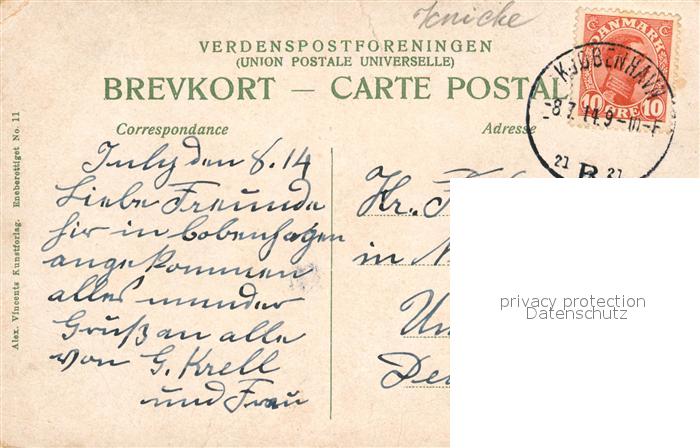 Knicke
VERDENSPOSTFORENINGEN
(UNION POSTALE UNIVERSELLE)
BREVKORT — CARTE POSTALE
DANMARK
10 ØRE 10
KJØBENHAVN
-8.7.14.9-10.F
21 B 21
Correspondance
Adresse
July den 8.14
Liebe Freunde
hir in Cobenhagen
angekommen
alles munder
Gruß an alle
von G. Krell
und Frau
Hr.
in
Alex. Vincents Kunstforlag. Eneberettiget No. 11
privacy protection
Datenschutz